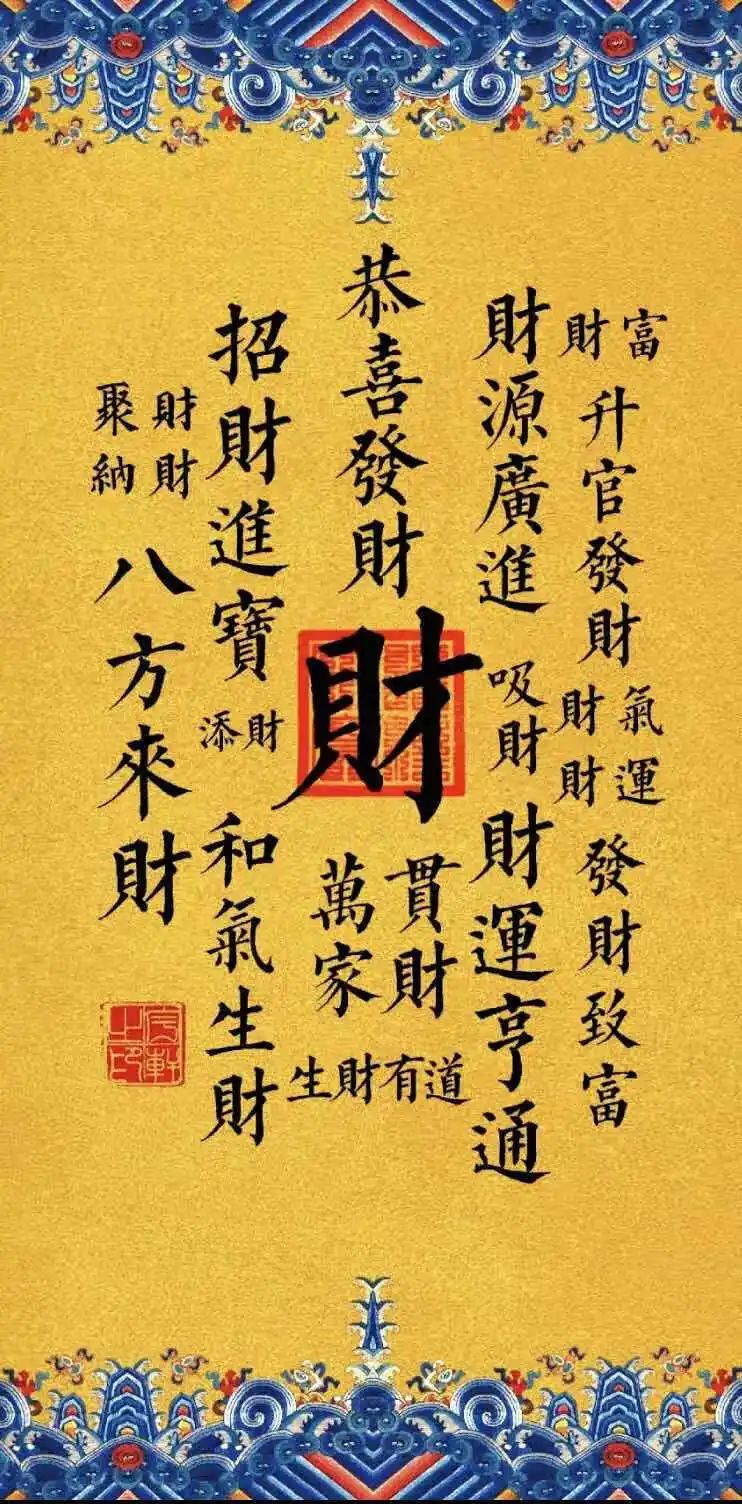 財富
升官發財
財氣
財運
發財致富
財源廣進
吸財
財運亨通
恭喜發財
財
貫財
萬家
生財有道
招財進寶
添財
和氣生財
財財
聚納
八方來財